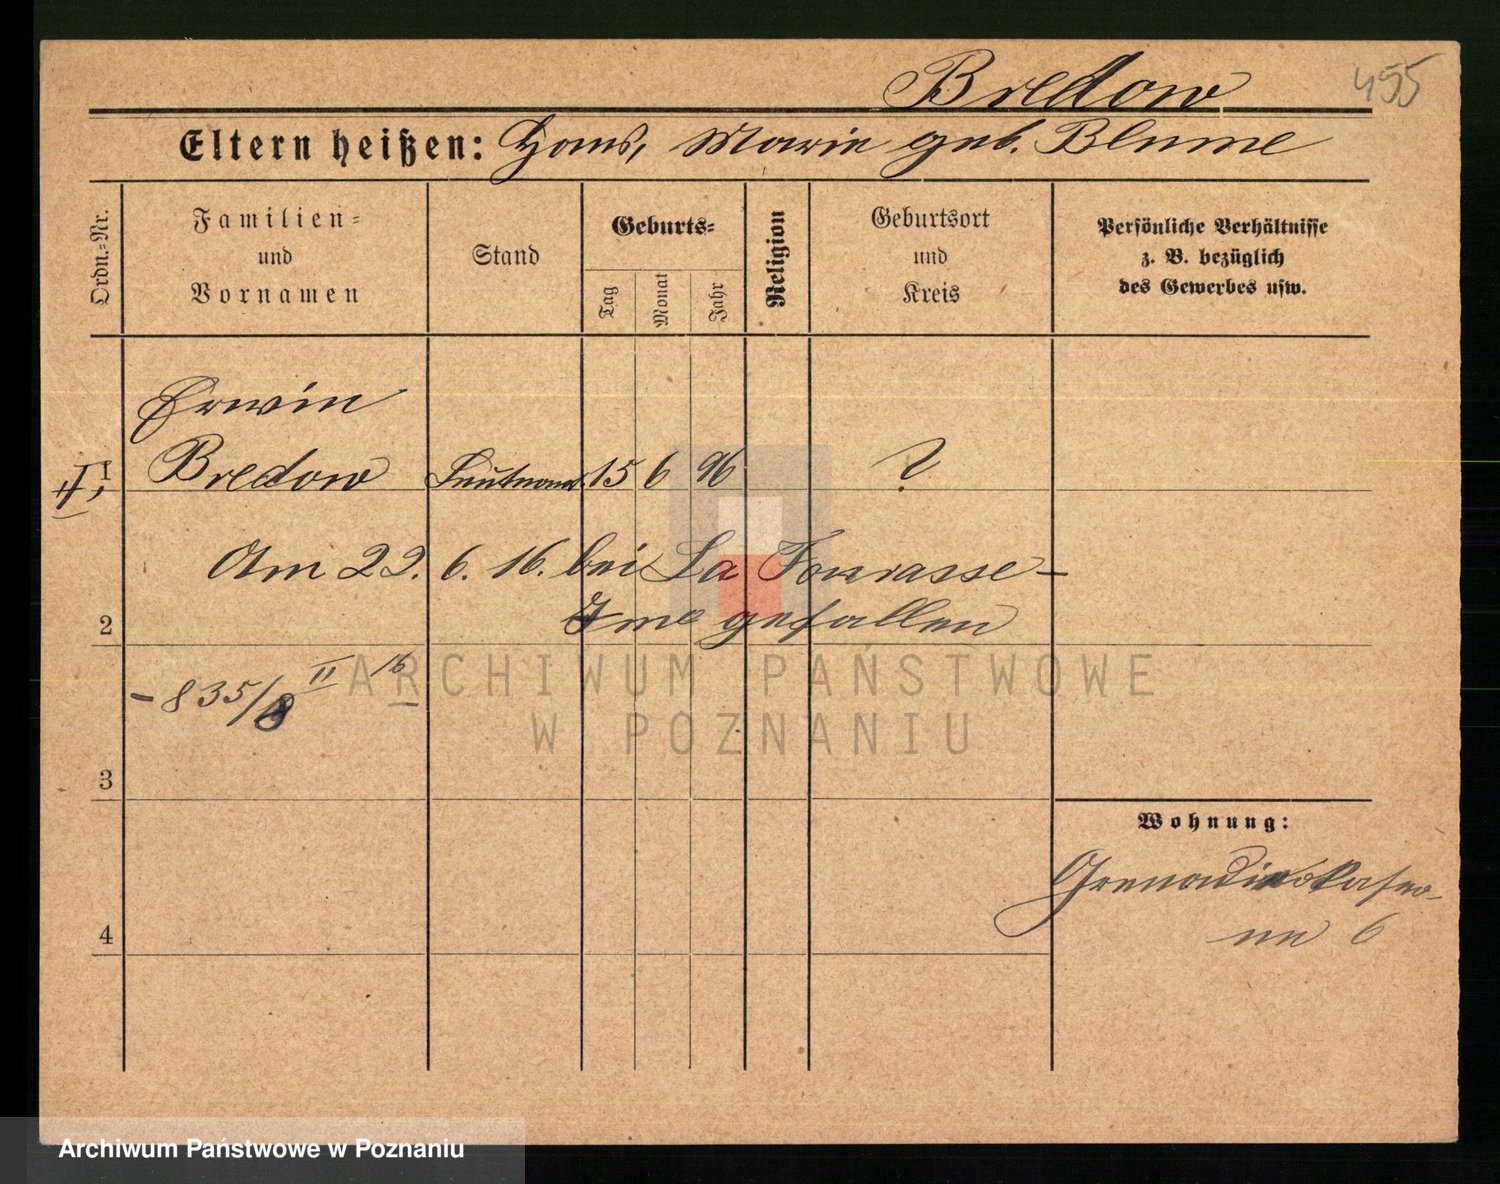 Bredow
455
Eltern heißen: Hans, Marie geb. Blume
Ordn.=Nr.
Familien=
und
Vornamen
Stand
Geburts=
Tag
Monat
Jahr
Religion
Geburtsort
und
Kreis
Persönliche Verhältnisse
z. B. bezüglich
des Gewerbes usw.
Erwin
Bredow Leutnant 15 6 96 ?
Am 22. 6. 16. bei La
gefallen
2
- 835/8 II 16
ARCHIWUM PAŃSTWOWE
W POZNANIU
3
Wohnung:
Grenadierkaser-
ne 6
4
Archiwum Państwowe w Poznaniu